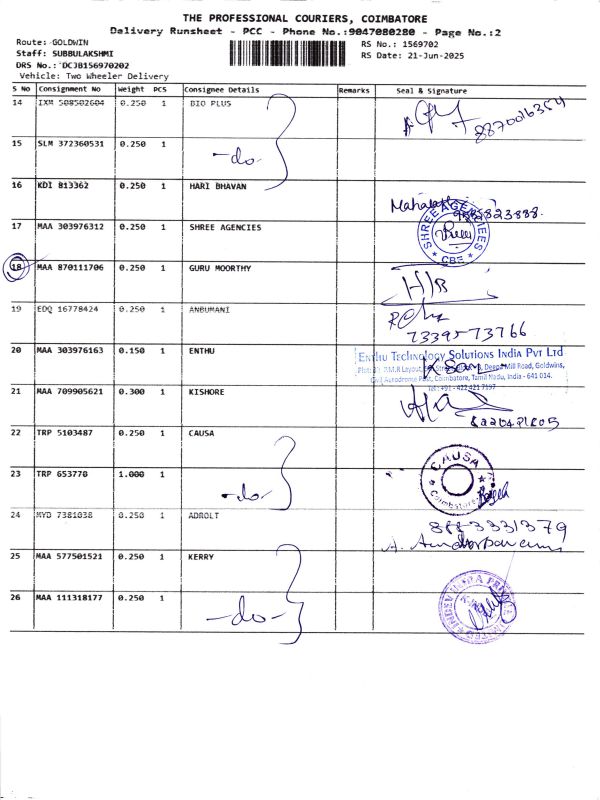 THE PROFESSIONAL COURIERS, COIMBATORE
Delivery Runsheet - PCC - Phone No.:9047080280 - Page No.:2
Route: GOLDWIN
RS No.: 1569702
Staff: SUBBULAKSHMI
RS Date: 21-Jun-2025
DRS No.: DCJB156970202
Vehicle: Two Wheeler Delivery
S No Consignment No Weight PCS Consignee Details Remarks Seal & Signature
14 IXM 508502604 0.250 1 BIO PLUS
8870016354
15 SLM 372360531 0.250 1 -do-
16 KDI 813362 0.250 1 HARI BHAVAN
17 MAA 303976312 0.250 1 SHREE AGENCIES
SHREE AGENCIEES
CBE
18 MAA 870111706 0.250 1 GURU MOORTHY
19 EDQ 16778424 0.250 1 ANBUMANI
7339573766
20 MAA 303976163 0.150 1 ENTHU
ENTHU TECHNOLOGY SOLUTIONS INDIA PVT LTD
Deepa Mill Road, Goldwins,
Civil Aerodrome Post, Coimbatore, Tamil Nadu, India - 641 014.
Tel: +91 - 422 421 7197
21 MAA 709905621 0.300 1 KISHORE
22 TRP 5103487 0.250 1 CAUSA
CAUSA
Coimbatore
23 TRP 653770 1.000 1 -do-
24 MYD 7381038 0.250 1 ADROLT
25 MAA 577501521 0.250 1 KERRY
26 MAA 111318177 0.250 1 -do-